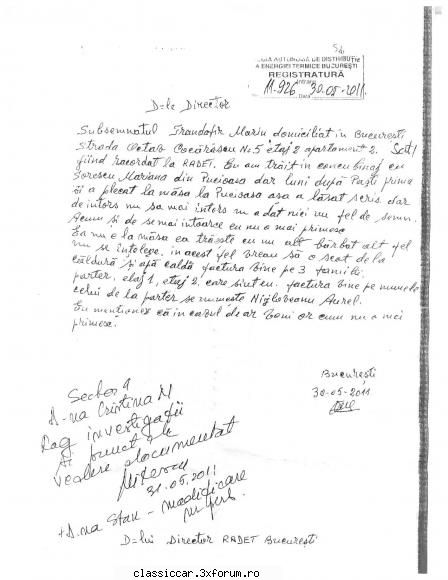 REGIA AUTONOMĂ DE DISTRIBUȚIE
A ENERGIEI TERMICE BUCUREȘTI
REGISTRATURĂ
11.926 30.05.2011
D-le Director
Subsemnatul Trandafir Marin domiciliat în București
strada Octav Cocărăscu Nr. 5 etaj 2 apartament 2. Sct 1
fiind racordat la RADET. Eu am trăit în concubinaj cu
Sorescu Mariana din Pucioasa dar luni după Paști prima
zi a plecat la măsa la Pucioasa așa a lăsat scris dar
deintors nu sa mai intors nu a dat nici un fel de semn.
Acum și de se mai intoarce eu nu o mai primesc
Ea nu e la măsa ea trăește cu un alt bărbat alt fel
nu se înțelege. in acest fel vreau să o scot de la
căldură și apă caldă factura vine pe 3 familii
parter, etaj 1, etaj 2. care sint eu. factura vine pe numele
celui de la parter se numeste Aurel.
Eu mentionez că in cazul de ar veni or cum nu o mai
primesc.
București
30-05-2011
Sector 1
D-na Cristina M
Rog investigații
și punct de
vedere documentat
31.05.2011
+ D.na Stan - modificare
nr pers
D-lui Director RADET București
classiccar.3xforum.ro